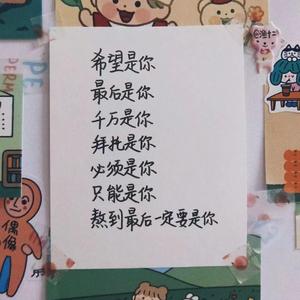 希望是你
最后是你
千万是你
拜托是你
必须是你
只能是你
熬到最后一定要是你
偶像